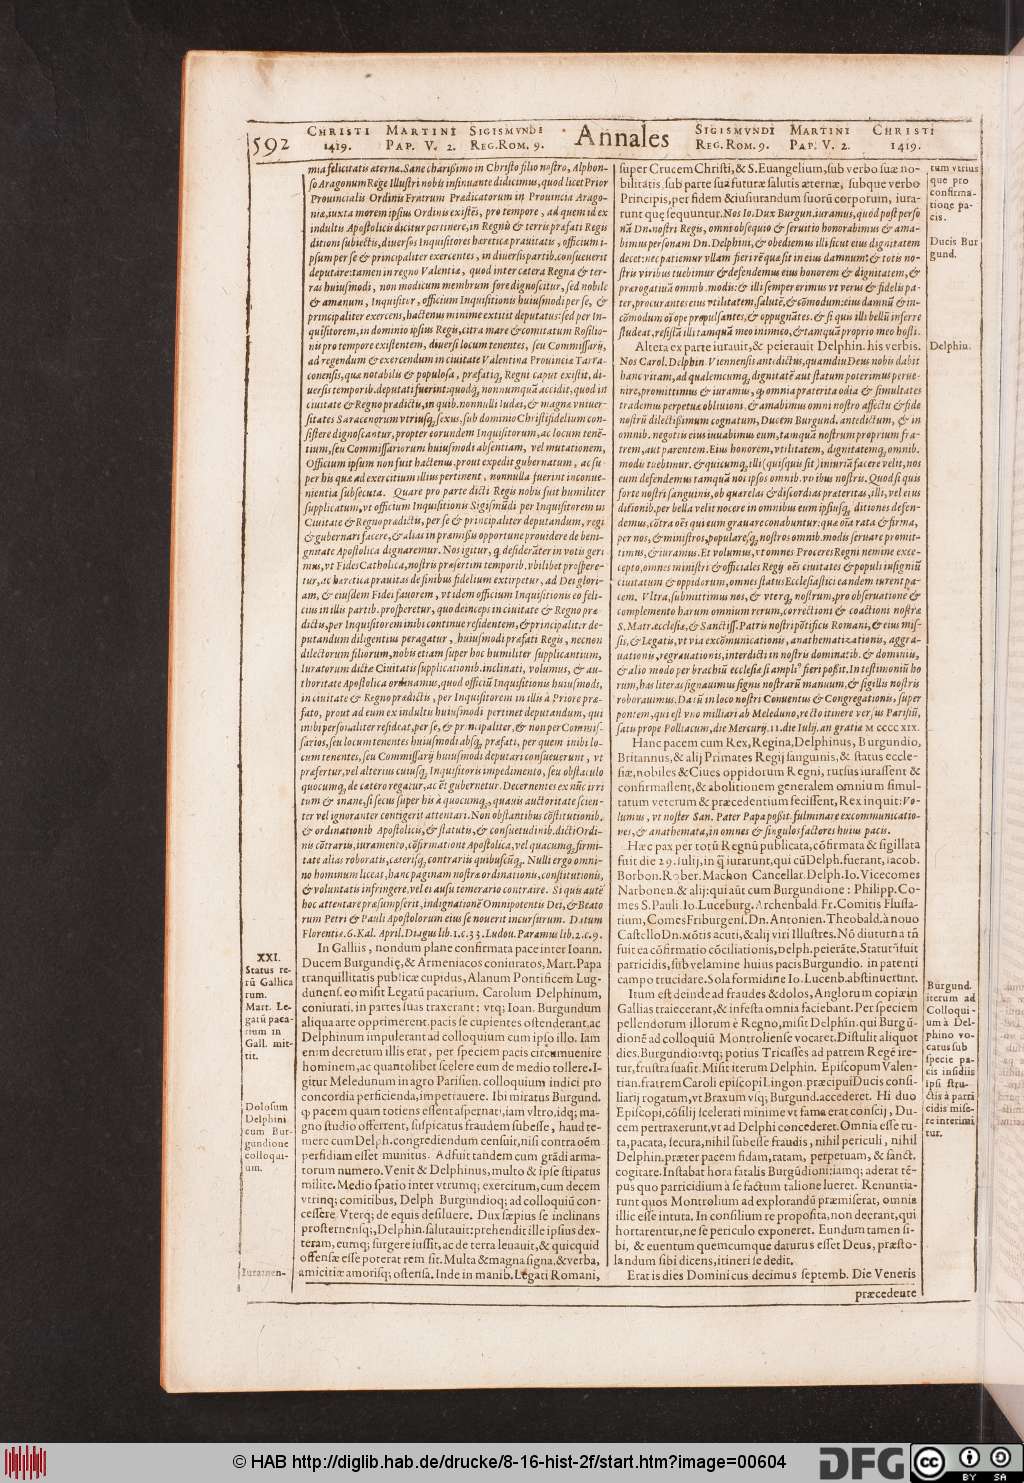 592
CHRISTI MARTINI SIGISMVNDI Annales SIGISMVNDI MARTINI CHRISTI
1419. PAP. V. 2. REG.ROM. 9. REG.ROM.9. PAP. V. 2. 1419.
mia felicitatis æterna. Sane charissimo in Christo filio nostro, Alphon-
so Aragonum Rege Illustri nobis insinuante didicimus, quod licet Prior
Prouincialis Ordinis Fratrum Prædicatorum in Prouincia Arago-
niæ, iuxta morem ipsius Ordinis existēs, pro tempore, ad quem id ex
indultis Apostolicis dicitur pertinere, in Regnis & terris præfati Regis
ditioni subiectis, diuersos Inquisitores hæreticæ prauitatis, officium i-
psum per se & principaliter exercentes, in diuersis partib. consueuerit
deputare: tamen in regno Valentiæ, quod inter cætera Regna & ter-
ras huiusmodi, non modicum membrum fore dignoscitur, sed nobile
& amœnum, Inquisitor, officium Inquisitionis huiusmodi per se, &
principaliter exercens, hactenus minime extitit deputatus: sed per In-
quisitorem, in dominio ipsius Regis, citra mare & comitatum Rosilio-
nis pro tempore existentem, diuersi locum tenentes, seu Commissarij,
ad regendum & exercendum in ciuitate Valentina Prouinciæ Tarra-
conensis, quæ notabilis & populosa, præfatiq; Regni caput existit, di-
uersis temporib. deputati fuerint: quodq; nonnumquā accidit, quod in
ciuitate & Regno prædictis, in quib. nonnulli Iudæi, & magnæ vniuer-
sitates Saracenorum vtriusq; sexus, sub dominio Christifidelium con-
sistere dignoscantur, propter eorundem Inquisitorum, ac locum tenē-
tium, seu Commissariorum huiusmodi absentiam, vel mutationem,
Officium ipsum non fuit hactenus, prout expedit gubernatum, ac su-
per his quæ ad exercitium illius pertinent, nonnulla fuerint inconue-
nientia subsecuta. Quare pro parte dicti Regis nobis fuit humiliter
supplicatum, vt officium Inquisitionis Sigismūdi per Inquisitorem in
Ciuitate & Regno prædictis, per se & principaliter deputandum, regi
& gubernari facere, & alias in præmissis opportune prouidere de beni-
gnitate Apostolica dignaremur. Nos igitur, q desiderāter in votis geri
mus, vt Fides Catholica, nostris præsertim temporib. vbilibet prospere-
tur, ac hæretica prauitas de finibus fidelium extirpetur, ad Dei glori-
am, & eiusdem Fidei fauorem, vt idem officium Inquisitionis eo feli-
cius in illis partib. prosperetur, quo deinceps in ciuitate & Regno præ-
dictis, per Inquisitorem inibi continue residentem, & principaliter de-
putandum diligentius peragatur, huiusmodi præfati Regis, necnon
dilectorum filiorum, nobis etiam super hoc humiliter supplicantium,
Iuratorum dictæ Ciuitatis supplicationib. inclinati, volumus, & au-
thoritate Apostolica ordinamus, quod officiū Inquisitionis huiusmodi,
in ciuitate & Regno prædictis, per Inquisitorem in illis à Priore præ-
fato, prout ad eum ex indultis huiusmodi pertinet deputandum, qui
inibi personaliter resideat, per se, & principaliter, & non per Commis-
sarios, seu locum tenentes huiusmodi absq; præfati, per quem inibi lo-
cum tenentes, seu Commissarij huiusmodi deputari consueuerunt, vt
præfertur, vel alterius cuiusq; Inquisitoris impedimento, seu obstaculo
quocumq; de cætero regatur, ac ēt gubernetur. Decernentes ex nūc irri
tum & inane, si secus super his à quocumq; quauis auctoritate scien-
ter vel ignoranter contigerit attentari. Non obstantibus cōstitutionib.
& ordinationib Apostolicis, & statutis, & consuetudinib. dicti Ordi-
nis cōtrariis, iuramento, cōfirmatione Apostolica, vel quacumq; firmi-
tate alias roboratis, cæterisq; contrariis quibuscūq;. Nulli ergo omni-
no hominum liceat, hanc paginam nostræ ordinationis, constitutionis,
& voluntatis infringere, vel ei ausu temerario contraire. Si quis autē
hoc attentare præsumpserit, indignationē Omnipotentis Dei, & Beato
rum Petri & Pauli Apostolorum eius se nouerit incursurum. Datum
Florentiæ. 6. Kal. April. Diagus lib. 1. c. 33. Ludou. Paramus lib. 2. c. 9.
XXI.
Status re-
rū Gallica
rum.
Mart. Le-
gatū paca-
rium in
Gall. mit-
tit.
In Galliis, nondum plane confirmata pace inter Ioann.
Ducem Burgundię, & Armeniacos coniuratos, Mart. Papa
tranquillitatis publicæ cupidus, Alanum Pontificem Lug-
dunens. eo misit Legatū pacarium. Carolum Delphinum,
coniurati, in partes suas traxerant: vtq; Ioan. Burgundum
aliqua arte opprimerent. pacis se cupientes ostenderant, ac
Delphinum impulerant ad colloquium cum ipso illo. Iam
enim decretum illis erat, per speciem pacis circumuenire
hominem, ac quantolibet scelere eum de medio tollere. I-
gitur Meledunum in agro Parisien. colloquium indici pro
concordia perficienda, impetrauere. Ibi miratus Burgund.
q pacem quam totiens essent aspernati, iam vltro, idq; ma-
gno studio offerrent, suspicatus fraudem subesse, haud te-
mere cum Delph. congrediendum censuit, nisi contra oēm
perfidiam esset munitus. Adfuit tandem cum grādi arma-
torum numero. Venit & Delphinus, multo & ipse stipatus
milite. Medio spatio inter vtrumq; exercitum, cum decem
vtrinq; comitibus, Delph Burgundioq; ad colloquiū con-
cessere. Vterq; de equis desiluere. Dux sæpius se inclinans
prosternensq;, Delphin. salutauit: prehendit ille ipsius dex-
teram, eumq; surgere iussit, ac de terra leuauit, & quicquid
offensæ esse poterat rem sit. Multa & magna signa, & verba,
amicitiæ amorisq; ostensa. Inde in manib. Legati Romani,
Dolosum
Delphini
cum Bur-
gundione
colloqui-
um.
Iuramen-
super Crucem Christi, & S. Euangelium, sub verbo suæ no-
bilitatis. sub parte suā futuræ salutis æternæ, subque verbo
Principis, per fidem & iusiurandum suorū corporum, iura-
runt quę sequuntur. Nos Io. Dux Burgun. iuramus, quòd post perso
nā Dn. nostri Regis, omni obsequio & seruitio honorabimus & ama-
bimus personam Dn. Delphini, & obediemus illi sicut eius dignitatem
decet: nec patiemur vllam fieri rē quæ sit in eius damnum: & totis no-
stris viribus tuebimur & defendemus eius honorem & dignitatem, &
prærogatiuā omnib. modis: & illi semper erimus vt verus & fidelis pa-
ter, procurantes eius vtilitatem, salutē, & cōmodum: eius damnū & in-
cōmodum oī ope propulsantes, & oppugnātes. & si quis illi bellū inferre
studeat, resistā illi tamquā meo inimico, & tamquā proprio meo hosti.
Altera ex parte iurauit, & peierauit Delphin. his verbis.
Nos Carol. Delphin Viennensis antedictus, quamdiu Deus nobis dabit
hanc vitam, ad qualemcumq; dignitatē aut statum poterimus perue-
nire, promittimus & iuramus, q omnia præterita odia & simultates
trademus perpetuæ obliuioni, & amabimus omni nostro affectu & fide
nostrū dilectissimum cognatum, Ducem Burgund. antedictum, & in
omnib. negotiis eius iuuabimus eum, tamquā nostrum proprium fra-
trem, aut parentem. Eius honorem, vtilitatem, dignitatemq; omnib.
modis tuebimur. & quicumq; illi (quisquis sit) iniuriā facere velit, nos
eum defendemus tamquā noi ipsos omnib. viribus nostris. Quod si quis
forte nostri sanguinis, ob querelas & discordias præteritas, illi, vel eius
ditionib. per bella velit nocere in omnibus eum ipsiusq; ditiones defen-
demus, cōtra oēs qui eum grauare conabuntur: quæ oīa rata & firma,
per nos, & ministros, popularesq; nostros omnib. modis seruare promit-
timus, & iuramus. Et volumus, vt omnes Proceres Regni nemine exce-
cepto, omnes ministri & officiales Regij oēs ciuitates & populi insigniū
ciuitatum & oppidorum, omnes status Ecclesiastici eandem iurent pa-
cem. Vltra, submittimus nos, & vterq; nostrum, pro obseruatione &
complemento harum omnium rerum, correctioni & coactioni nostræ
S. Matr. ecclesiæ, & Sanctiss. Patris nostri pōtificis Romani, & eius mis-
sis, & Legatis, vt via excōmunicationis, anathematizationis, aggra-
uationis, regrauationis, interdicti in nostris dominatib. & dominiis,
& alio modo per brachiū ecclesiæ si ampli⁹ fieri possit. In testimoniū ho
rum, has literas signauimus signis nostrarū manuum, & sigillis nostris
roborauimus. Datū in loco nostri Conuentus & Congregationis, super
pontem, qui est vno milliari ab Meleduno, recto itinere versus Parisiū,
satis prope Polliacum, die Mercurij. 11. die Iulij. an gratiæ M CCCC XIX.
Hanc pacem cum Rex, Regina, Delphinus, Burgundio,
Britannus, & alij Primates Regij sanguinis, & status eccle-
siæ, nobiles & Ciues oppidorum Regni, rursus iurassent &
confirmassent, & abolitionem generalem omnium simul-
tatum veterum & præcedentium fecissent, Rex inquit: Vo-
lumus, vt noster San. Pater Papa possit. fulminare excommunicatio-
nes, & anathemata, in omnes & singulos factores huius pacis.
Hæc pax per totū Regnū publicata, cōfirmata & sigillata
fuit die 29. Iulij, in q̄ iurarunt, qui cū Delph. fuerant, Iacob.
Borbon. Rober. Mackon Cancellar. Delph. Io. Vicecomes
Narbonen. & alij: qui aūt cum Burgundione: Philipp. Co-
mes S. Pauli. Io. Luceburg. Archenbald Fr. Comitis Flussa-
tium, Comes Friburgens. Dn. Antonien. Theobald. à nouo
Castello Dn. mōtis acuti, & alij viri Illustres. Nō diuturna tñ
fuit ea cōfirmatio cōciliationis, delph. peierāte. Statutū fuit
parricidis, sub velamine huius pacis Burgundio. in patenti
campo trucidare. Sola formidine Io. Lucenb. abstinuerunt.
Itum est deinde ad fraudes & dolos, Anglorum copiæ in
Gallias traiecerant, & infesta omnia faciebant. Per speciem
pellendorum illorum è Regno, misit Delphin. qui Burgū-
dionē ad colloquiū Montroliense vocaret. Distulit aliquot
dies. Burgundio: vtq; potius Tricasses ad patrem Regē ire-
tur, frustra suasit. Misit iterum Delphin. Episcopum Valen-
tian. fratrem Caroli episcopi Lingon. præcipui Ducis consi-
liarij rogatum, vt Braxum vsq; Burgund. accederet. Hi duo
Episcopi, cōsilij scelerati minime vt fama erat conscij, Du-
cem pertraxerunt, vt ad Delphi concederet. Omnia esse tu-
ta, pacata, secura, nihil subesse fraudis, nihil periculi, nihil
Delphin. præter pacem fidam, ratam, perpetuam, & sanct.
cogitare. Instabat hora fatalis Burgūdioni: iamq; aderat tē-
pus quo parricidium à se factum talione lueret. Renuntia-
runt quos Montrolium ad explorandū præmiserat, omnia
illic esse intuta. In consilium re proposita, non decrant, qui
hortarentur, ne se periculo exponeret. Eundum tamen si-
bi, & euentum quemcumque daturus esset Deus, præsto-
landum sibi dicens, itineri se dedit.
Erat is dies Dominicus decimus septemb. Die Veneris
præcedente
tum vtrius
que pro
confirma-
tione pa-
cis.
Ducis Bur
gund.
Delphin.
Burgund.
iterum ad
Colloqui-
um à Del-
phino vo-
catus sub
specie pa-
cis insidiis
ipsi stru-
ctis à parri
cidis mise-
re interimi
tur.
© HAB http://diglib.hab.de/drucke/8-16-hist-2f/start.htm?image=00604
DFG
cc BY SA